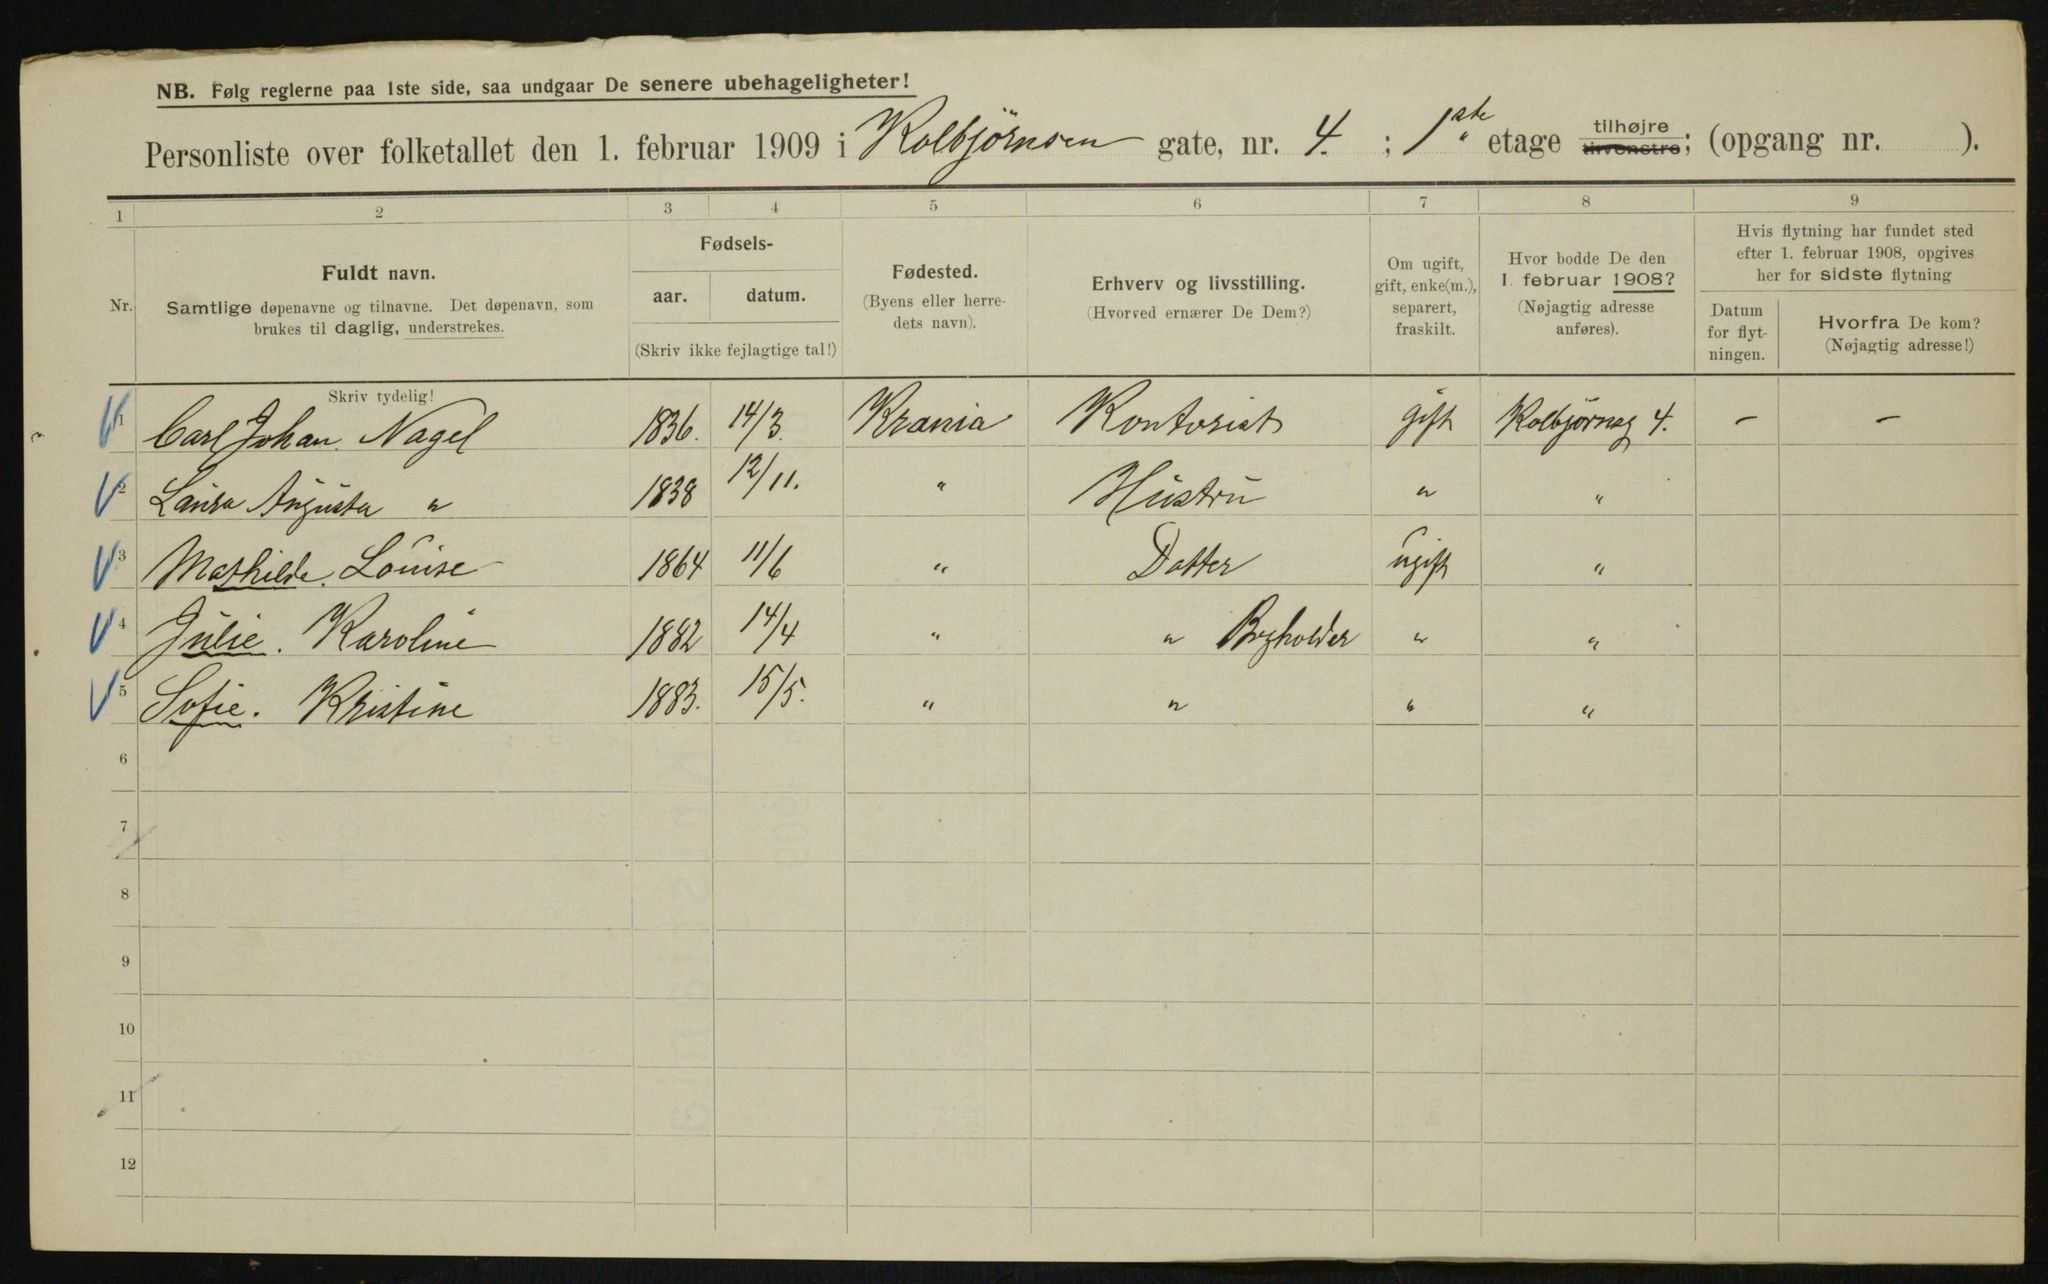 NB. Følg reglerne paa 1ste side, saa undgaar De senere ubehageligheter!
Personliste over folketallet den 1. februar 1909 i Kolbjørnsen gate, nr. 4. ; 1ste etage tilhøjre tilvenstre; (opgang nr. ).
1 2 3 4 5 6 7 8 9
Nr.
Fuldt navn.
Samtlige døpenavne og tilnavne. Det døpenavn, som
brukes til daglig, understrekes.
Fødsels-
aar. datum.
(Skriv ikke fejlagtige tal!)
Fødested.
(Byens eller herre-
dets navn).
Erhverv og livsstilling.
(Hvorved ernærer De Dem?)
Om ugift,
gift, enke(m.),
separert,
fraskilt.
Hvor bodde De den
1. februar 1908?
(Nøjagtig adresse
anføres).
Hvis flytning har fundet sted
efter 1. februar 1908, opgives
her for sidste flytning
Datum
for flyt-
ningen.
Hvorfra De kom?
(Nøjagtig adresse!)
Skriv tydelig!
1 Carl Johan Nagel 1836. 14/3. Krania Kontorist gift Kolbjørnsg 4. - -
2 Laura Augusta " 1838 12/11. " Hustru " "
3 Mathilde. Louise 1864 11/6 " Datter ugift "
4 Julie. Karoline 1882 14/4 " " Bogholder " "
5 Sofie. Kristine 1883. 15/5. " " " "
6
7
8
9
10
11
12